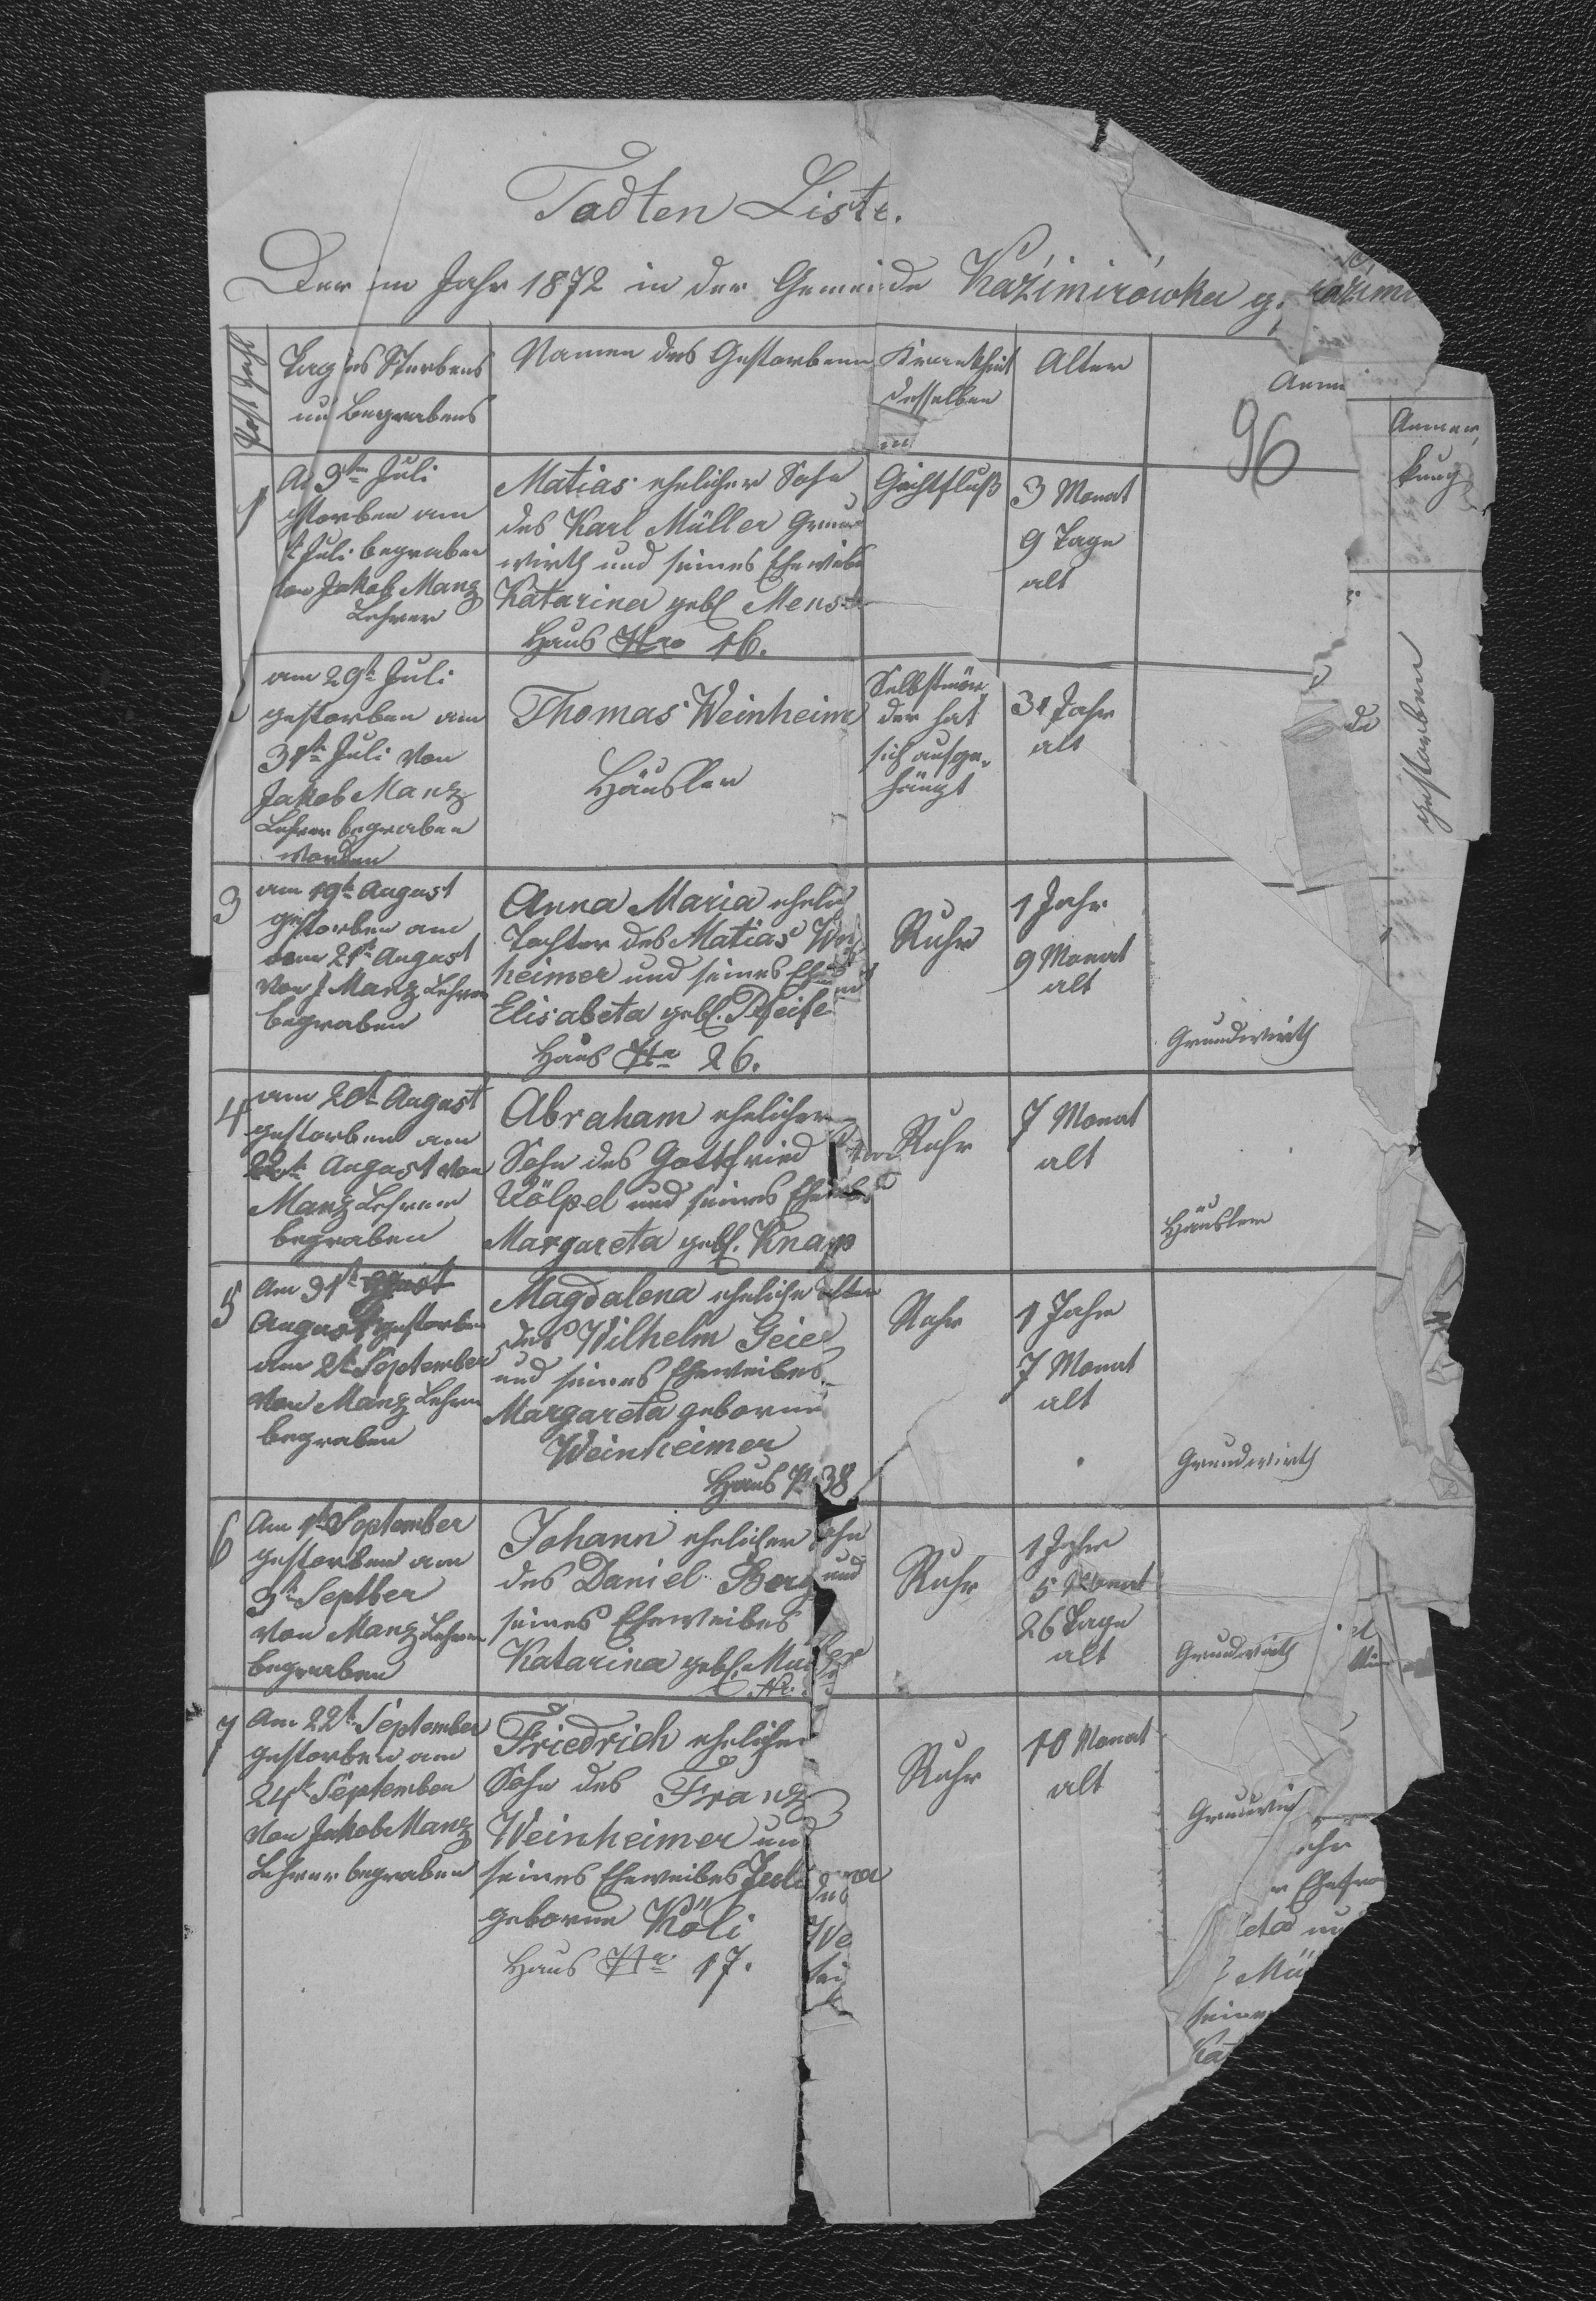 Todten Liste.
Der im Jahr 1872 in der Gemeinde Kaźimirówka g.
Post Zahl
Tag des Sterbens
und Begrabens
Namen des Gestorbenen
Krankheit
desselben
Alter
Anm
96
Anmer
kung
1
Am 3ten Juli
gestorben am
Juli begraben
von Jakob Manz
Lehrer
Matias ehelicher Sohn
des Karl Müller Grund
wirth und seines Eheweibes
Katarina gebl Mens
Haus Nro 16.
Gichtfluß
3 Monat
9 Tage
alt
am 29t Juli
gestorben am
31t Juli von
Jakob Manz
Lehrer begraben
worden
Thomas Weinheime
Häusler
Selbstmör
der hat
sich aufge-
hängt
31 Jahr
alt
gestorben
3
am 19t August
gestorben am
dem 21t August
von J Manz Lehrer
begraben
Anna Maria ehel
Tochter des Matias We
heimer und seines Ehe
Elisabeta gebl. Pfeife
Haus Nr 26.
Ruhr
1 Jahr
9 Monat
alt
Grundwirth
4
am 20t August
gestorben am
22t August von
Manz Lehrer
begraben
Abraham ehelicher
Sohn des Gottfried
Kölpel und seines Eheweibes
Margareta gebl. Knapp
Ruhr
7 Monat
alt
Häusler
5
Am 31t
August gestorben
am 2t September
von Manz Lehrer
begraben
Magdalena eheliche
des Wilhelm Geie
und seines Eheweibes
Margareta geborne
Weinheimer
Haus Nr 38
Ruhr
1 Jahr
7 Monat
alt
Grundwirth
6
Am 1t September
gestorben am
3t Septber
von Manz Lehrer
begraben
Johann ehelicher Sohn
des Daniel Berg und
seines Eheweibes
Katarina gebl.
Ruhr
1 Jahr
5 Monat
26 Tage
alt
Grundwirth
7
Am 22t September
gestorben am
24t September
von Jakob Manz
Lehrer begraben
Friedrich ehelicher
Sohn des Franz
Weinheimer und
seines Eheweibes Jul
geborne Köli
Haus Nr 17.
Ruhr
10 Monat
alt
Grundwirth